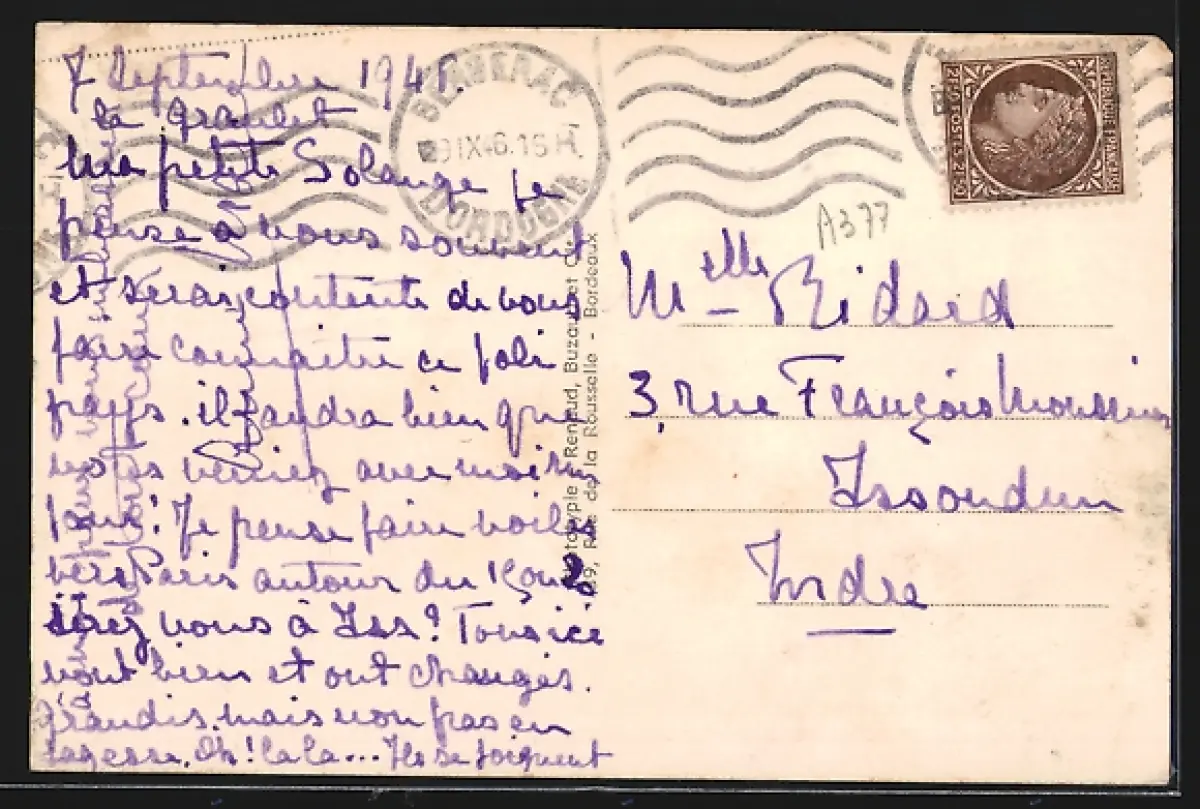 7 Septembre 194
la Graulet
Ma petite Solange je
pense à vous souvent
et serais contente de vous
faire connaitre ce joli
pays. il faudra bien que
veniez avec moi un
jour! Je pense faire voile
vers Paris autour du
serez vous à Iss? Tous ici
vont bien et ont changés.
grandis, mais non pas en
sagesse. Oh! la la... Ils se joignent
BERGERAC
9 IX 46. 16 H.
DORDOGNE
Phototypie J. Renaud, Buzaud et Cie
Rue de la Rousselle - Bordeaux
REPUBLIQUE FRANÇAISE
2F50 POSTES 2F50
A377
Melle Bidard
3, rue François
Issoudun
Indre